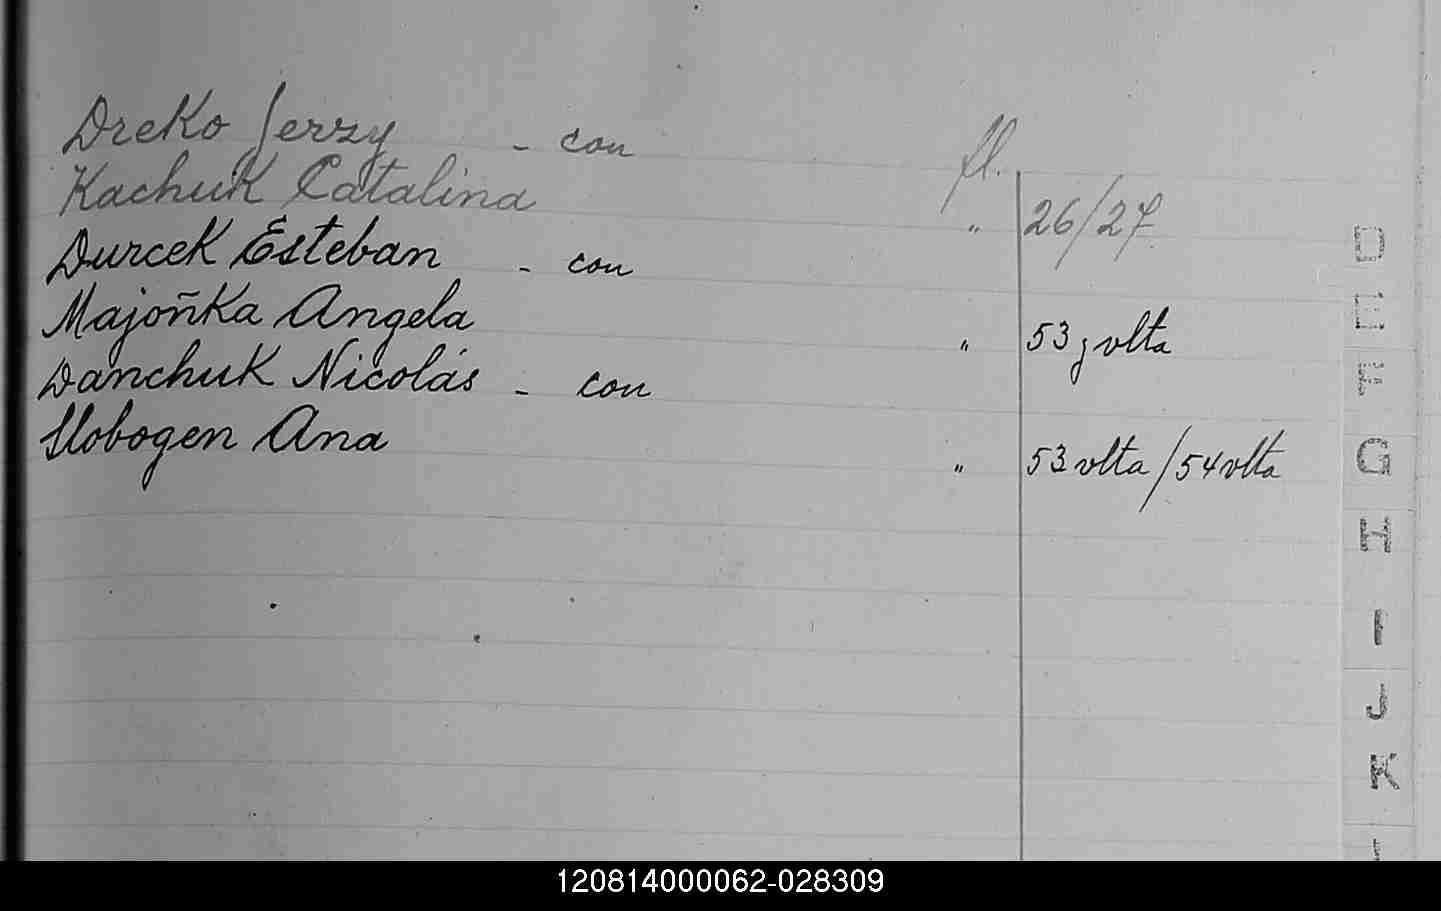 Dreko Jerzy - con
fl.
Kachuk Catalina
" 26/27
Durcek Esteban - con
Majoñka Angela
" 53 y volta
Danchuk Nicolás - con
Slobogen Ana
" 53 volta/54 volta
D
E
F
G
H
I
J
K
120814000062-028309